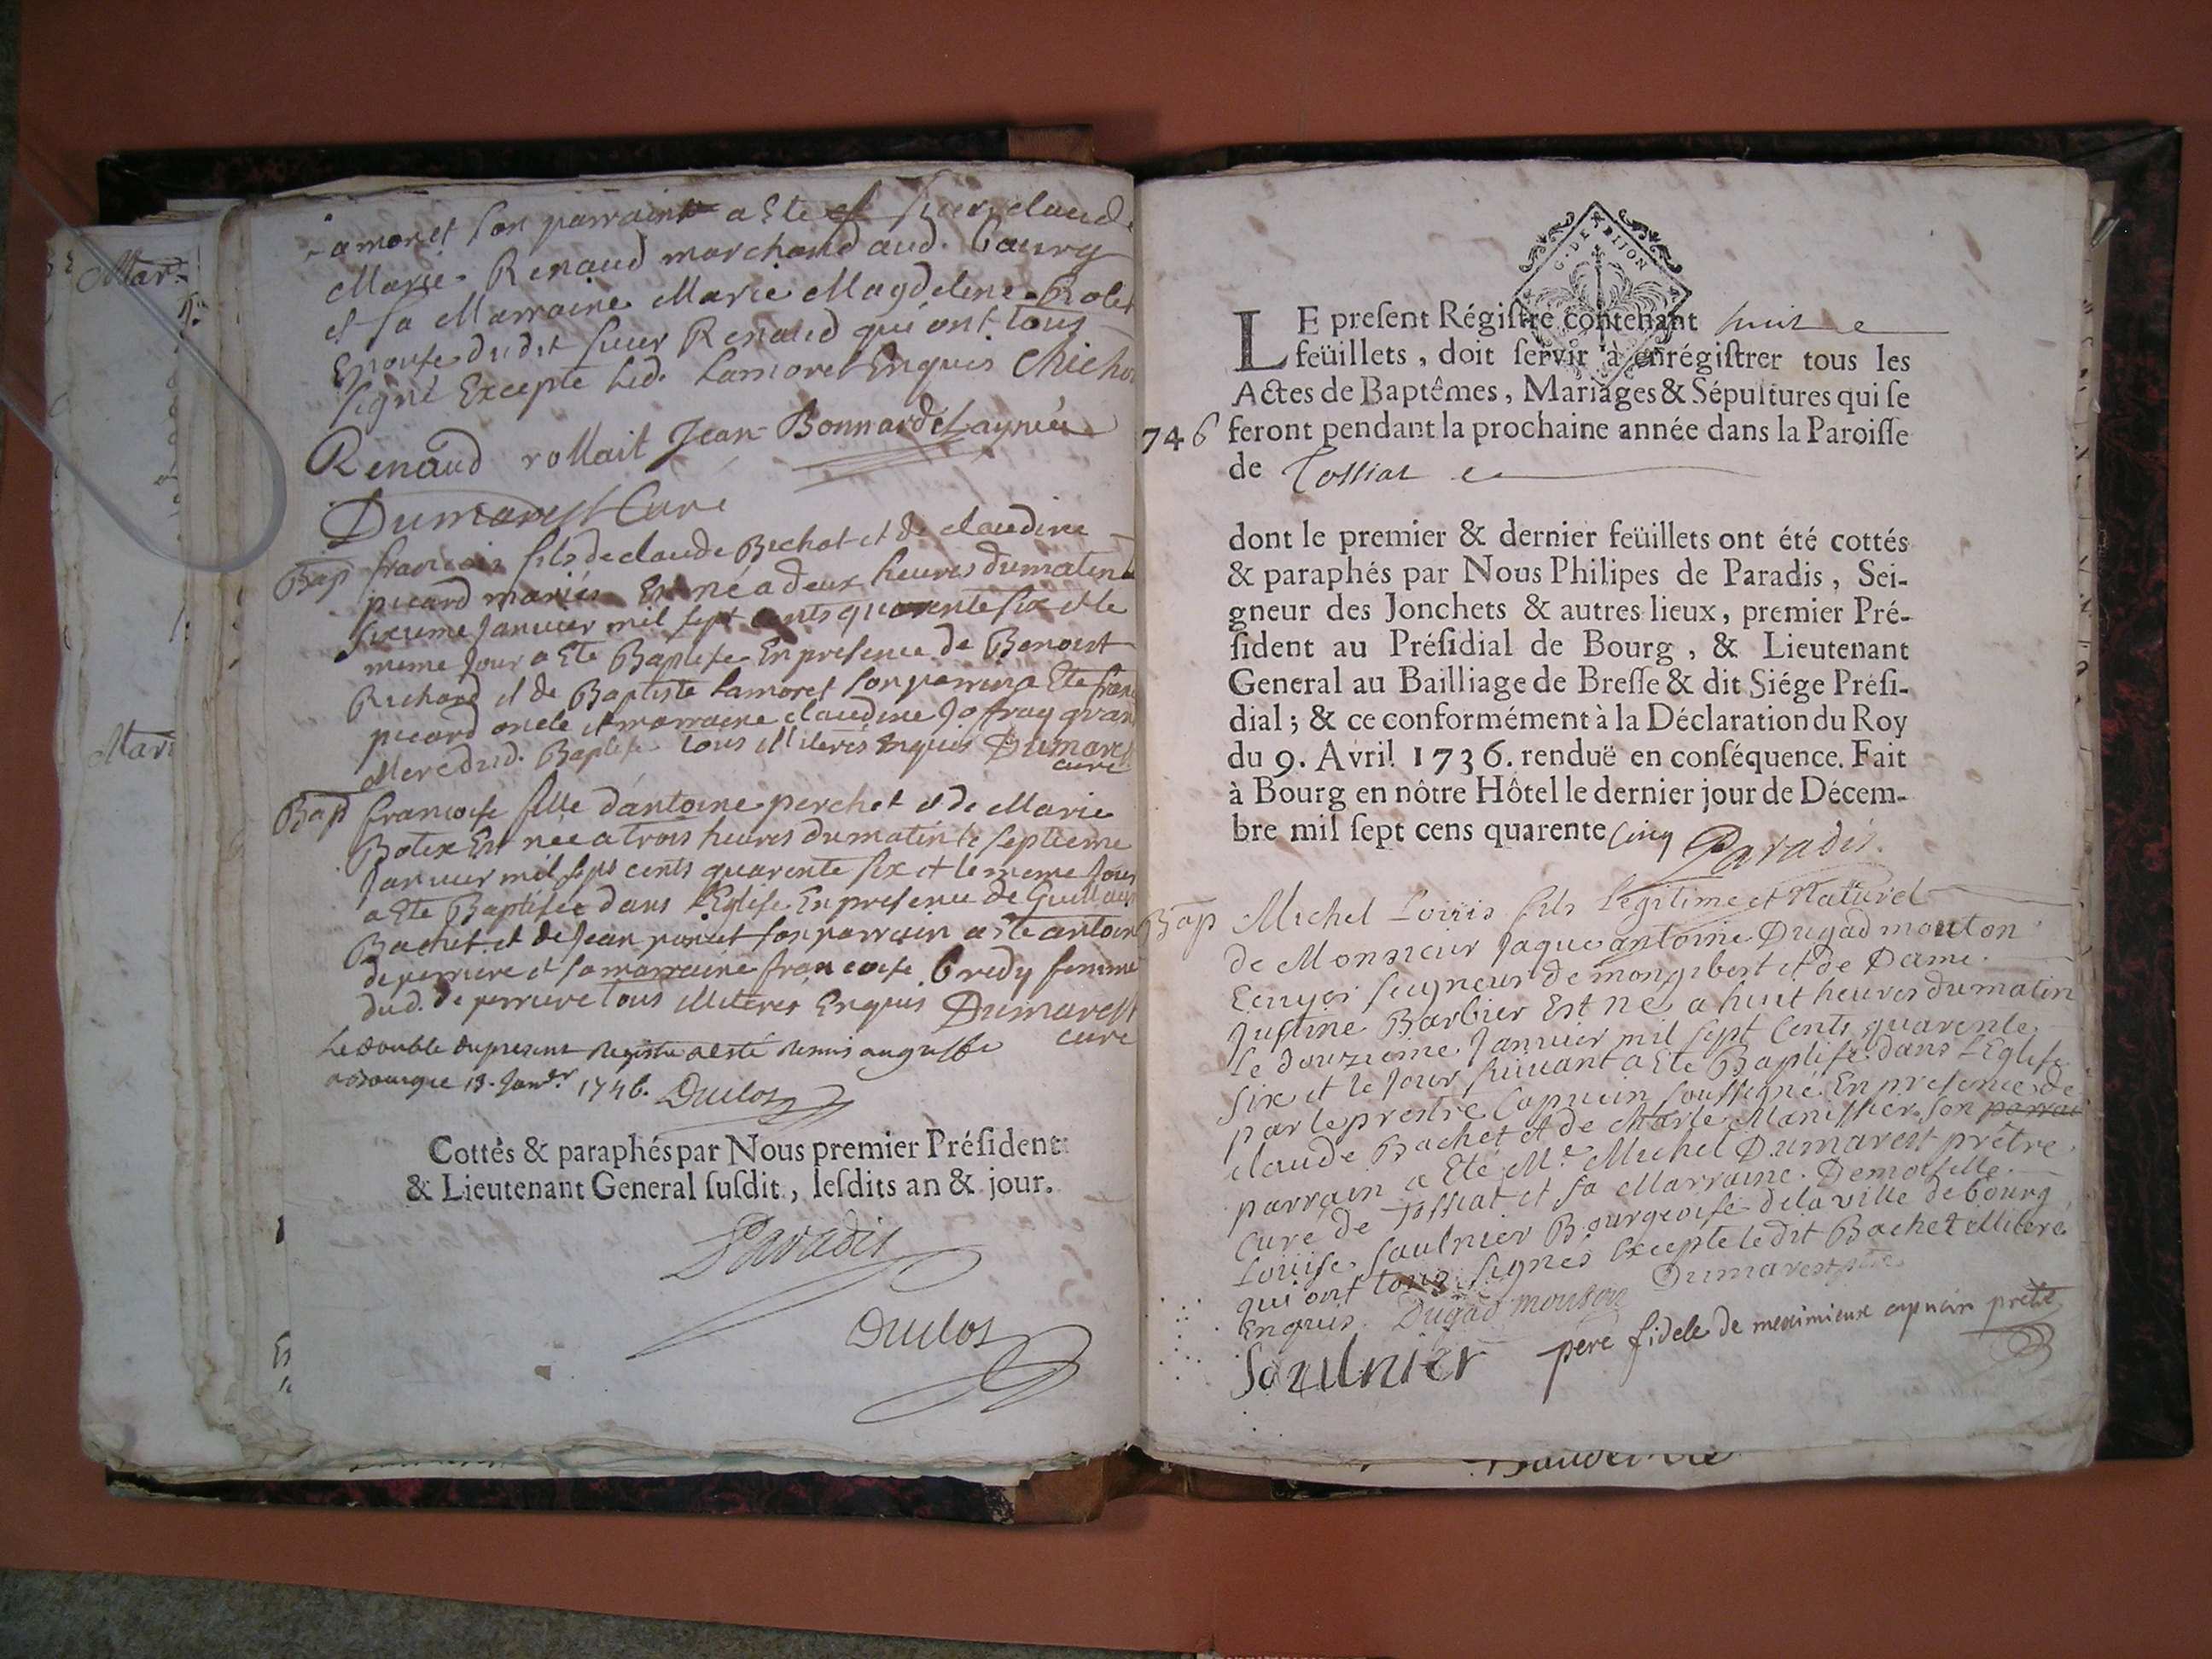 Mar.
Mari
amoret son parraint a Ete sieur claude
Marie Renaud marchand aud. bourg
et sa Marraine Marie Magdelene Rolet
Epouse dudit sieur Renaud qui ont tous
signé Excepte led. Lamoret Enquis Michon
Renaud rollait Jean Bonnardel
Dumarest Curé
Bap francois fils de claude Bichat et de claudine
picard mariés Est né a deux heures du matin
sixieme Janvier mil sept cents quarente six et le
meme Jour a Ete Baptisé En presence de Benoist
Richard et de Baptiste Lamoret son parrin a Ete fran
picard oncle et marraine claudine Joffray gran
Mere dud. Baptisé tous illiterés Enquis Dumarest
curé
Bap francoise fille d'antoine perchet et de Marie
Botex Est née a trois heures du matin le septieme
Janvier mil sept cents quarente six et le meme Jour
a Ete Baptisée dans l'Eglise En presence de Guillaum
Bachet et de Jean poncet son parrain a Ete antoin
deperriere et sa marraine francoise bredy femme
dud. deperriere tous illiterés Enquis Dumarest
curé
Le double du present Registre a esté remis au greffe
a Bourg ce 13. Janer. 1746. Duclos
Cottés & paraphés par Nous premier Président
& Lieutenant General susdit, lesdits an & jour.
Paradis
Duclos
G. DE DIJON
LE present Régistre contenant huit
feüillets, doit servir à enrégistrer tous les
Actes de Baptêmes, Mariages & Sépultures qui se
746 feront pendant la prochaine année dans la Paroisse
de Tossiat
dont le premier & dernier feüillets ont été cottés
& paraphés par Nous Philipes de Paradis, Sei-
gneur des Jonchets & autres lieux, premier Pré-
sident au Présidial de Bourg, & Lieutenant
General au Bailliage de Bresse & dit Siége Présidial
dial; & ce conformément à la Déclaration du Roy
du 9. Avril 1736. renduë en conséquence. Fait
à Bourg en nôtre Hôtel le dernier jour de Décem-
bre mil sept cens quarente cinq Paradis.
Bap Michel Louis fils Legitime et Naturel
de Monsieur Jaque antoine Dugad mouton
Ecuyer seigneur de mongibert et de Dame
Justine Barbier Est né a huit heures du matin
le douzieme Janvier mil sept Cents quarente
six et le Jour suivant a Ete Baptisé dans l'Eglise
par le prestre Capucin soussigné En presence de
claude Bachet et de charle Manissier son parrai
parrain a Eté Mre Michel Dumarest prêtre
Curé de Tossiat et sa Marraine Demoiselle
Louise Saulnier Bourgeoise de la ville de bourg
qui ont tous signés Excepté le dit Bachet illiteré
Enquis. Dugad mouton Dumarest ptre
Saulnier pere fidele de meximieux capucin prêtre